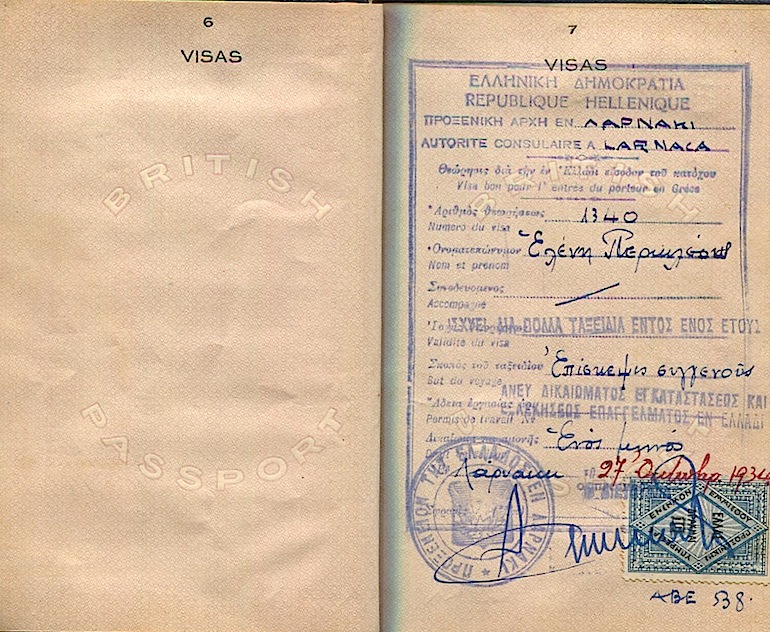 6
VISAS
BRITISH
PASSPORT
7
VISAS
ΕΛΛΗΝΙΚΗ ΔΗΜΟΚΡΑΤΙΑ
REPUBLIQUE HELLENIQUE
ΠΡΟΞΕΝΙΚΗ ΑΡΧΗ ΕΝ ΛΑΡΝΑΚΙ
AUTORITE CONSULAIRE A LARNACA
Θεώρησις διὰ τὴν ἐν Ἑλλάδι εἴσοδον τοῦ κατόχου
Visa bon pour l' entrée du porteur en Grèce
Ἀριθμὸς θεωρήσεως 1340
Numero du visa
Ὀνοματεπώνυμον Ἑλένη Περικλέους
Nom et prenom
Συνοδευομενος
Accompagne
ΙΣΧΥΕΙ ΔΙΑ ΠΟΛΛΑ ΤΑΞΕΙΔΙΑ ΕΝΤΟΣ ΕΝΟΣ ΕΤΟΥΣ
Validite du visa
Σκοπὸς τοῦ ταξειδίου Ἐπίσκεψις συγγενοῦς
But du voyage
ΑΝΕΥ ΔΙΚΑΙΩΜΑΤΟΣ ΕΓΚΑΤΑΣΤΑΣΕΩΣ ΚΑΙ
Ἄδεια ἐργασίας
ΕΞΑΣΚΗΣΕΩΣ ΕΠΑΓΓΕΛΜΑΤΟΣ ΕΝ ΕΛΛΑΔΙ
Permis de travail No
Ἑνὸς μηνός
Λάρνακι τῇ 27 Ὀκτωβρ 1934
ΠΡΟΞΕΝΕΙΟΝ ΤΗΣ ΕΛΛΑΔΟΣ ΕΝ ΛΑΡΝΑΚΙ
ABE 538.